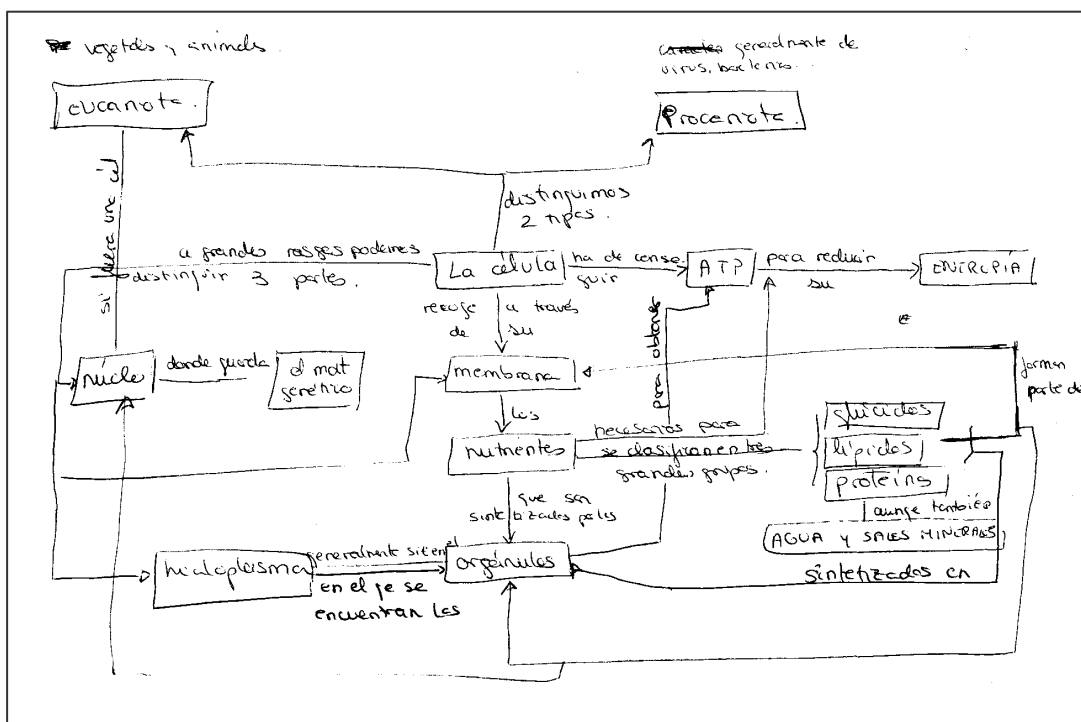 vegetales y animales
generalmente de
virus, bacterias...
eucariota.
Procariota.
distinguimos
2 tipos.
si fuera una cél
a grandes rasgos podemos
distinguir 3 partes.
La célula
ha de conse
guir
ATP
para reducir
su
ENTROPÍA
recoge a través
de su
para obtener
núcleo
donde guarda
el mat
genético
membrana
forman
parte de
los
nutrientes
necesarios para
se clasifican en tres
grandes grupos.
glúcidos
lípidos
proteins
aunqe también
AGUA Y SALES MINERALES
que son
sintetizados por los
hialoplasma
generalmente
en el qe se
encuentran los
orgánulos
sintetizados en